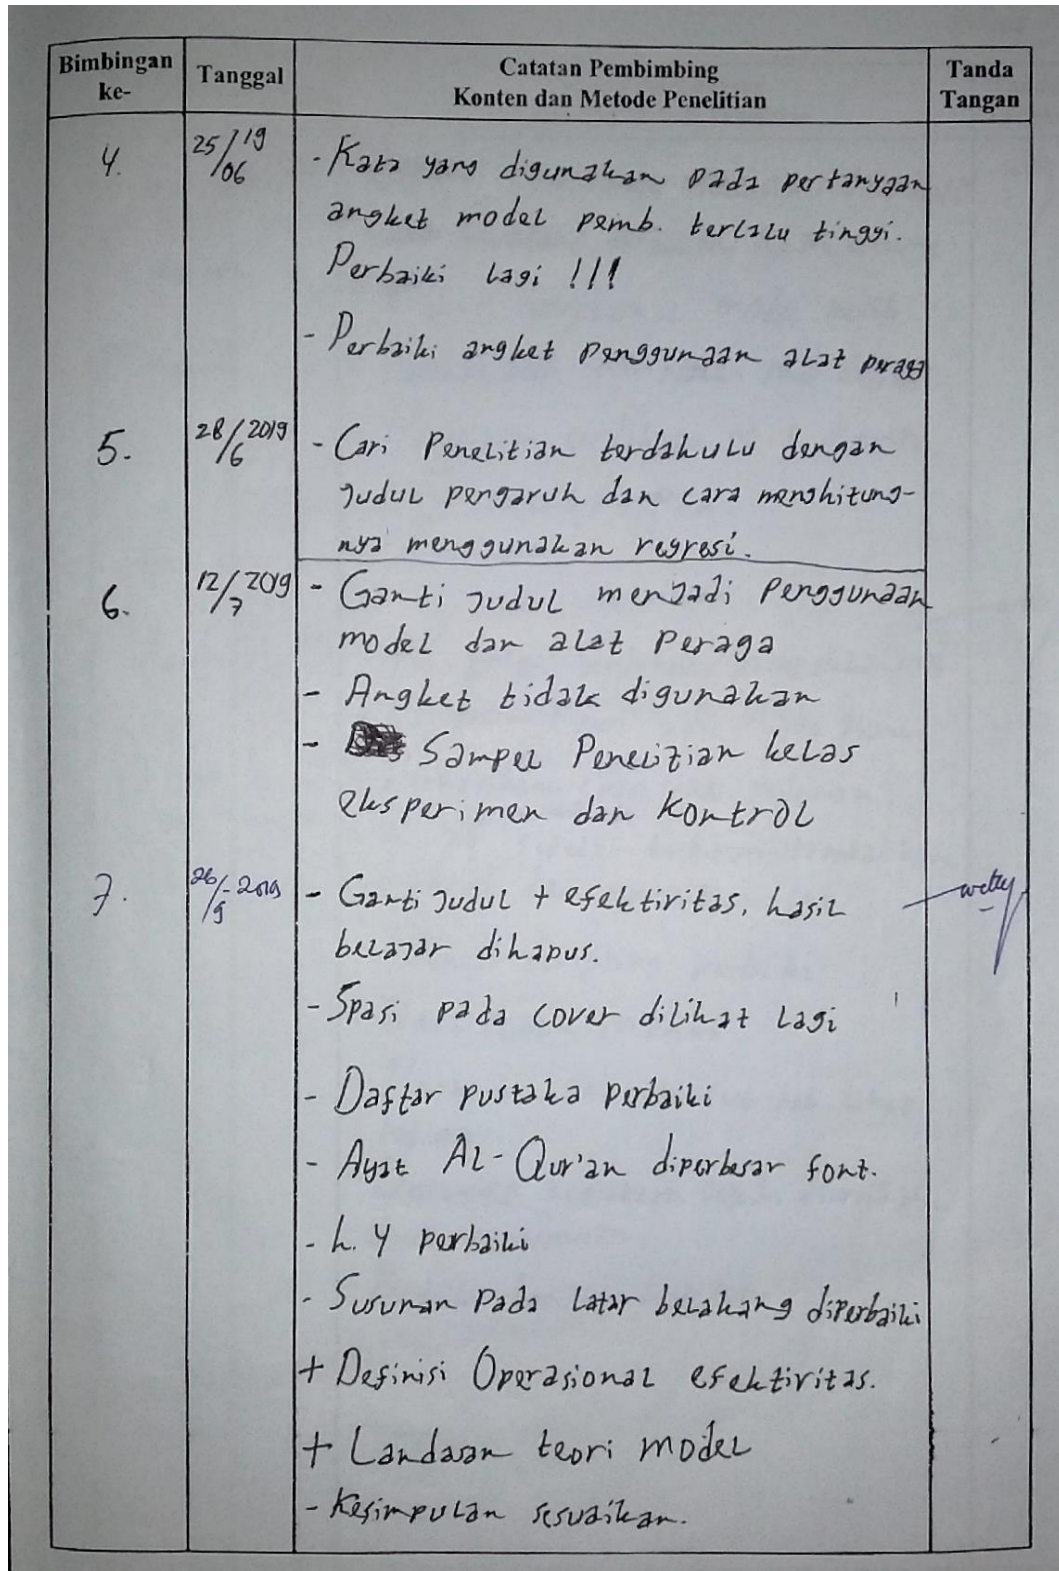 Bimbingan ke- Tanggal Catatan Pembimbing Konten dan Metode Penelitian Tanda Tangan
4. 25/06 '19 - Kata yang digunakan pada pertanyaan
angket model pemb. terlalu tinggi.
Perbaiki lagi !!!
- Perbaiki angket penggunaan alat peraga
5. 28/6 2019 - Cari Penelitian terdahulu dengan
judul pengaruh dan cara menghitung-
nya menggunakan regresi.
6. 12/7 2019 - Ganti judul menjadi Penggunaan
model dan alat Peraga
- Angket tidak digunakan
- Sampel Penelitian kelas
eksperimen dan kontrol
7. 26/9 - 2019 - Ganti judul + efektivitas, hasil
belajar dihapus.
- Spasi pada cover dilihat lagi
- Daftar pustaka perbaiki
- Ayat Al-Qur'an diperbesar font.
- h. 4 perbaiki
- Susunan Pada latar belakang diperbaiki
+ Definisi Operasional efektivitas.
+ Landasan teori model
- Kesimpulan sesuaikan.